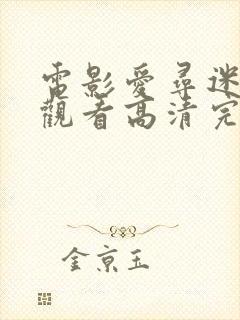 電影愛尋迷
觀看高清完
金京玉